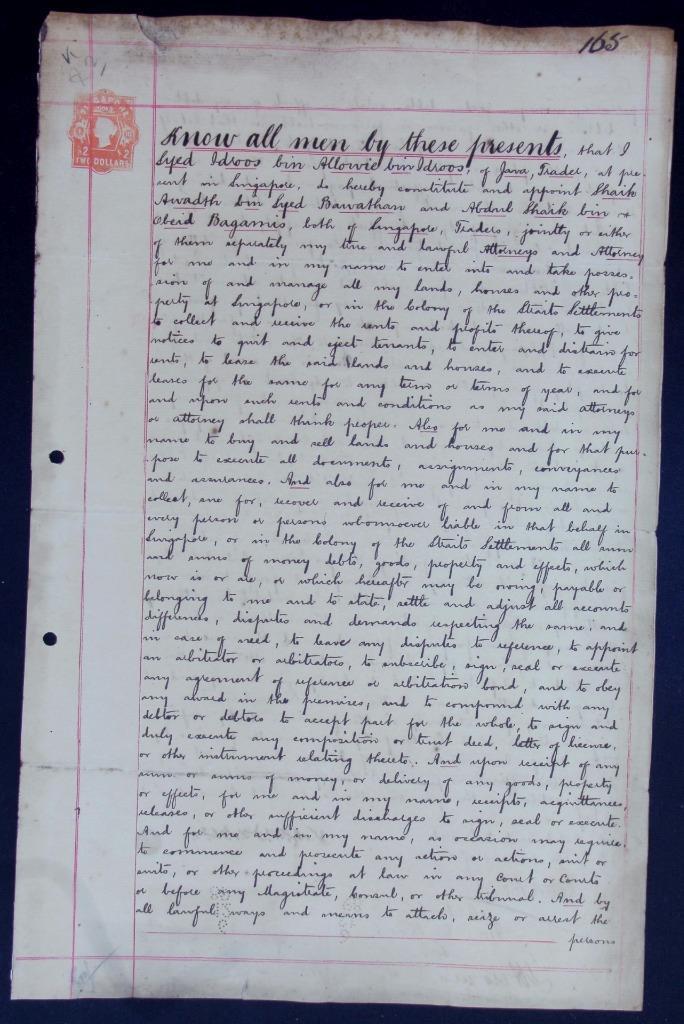 165
SINGAPORE
2 2
TWO DOLLARS
Know all men by these presents, that I
Syed Idroos bin Allowie bin Idroos, of Java, Trader, at pre-
sent in Singapore, do hereby constitute and appoint Shaik
Awadth bin Syed Bawathan and Abdul Shaik bin
Obeid Bagamis, both of Singapore, Traders, jointly or either
of them separately my true and lawful Attorneys and Attorney
for me and in my name to enter into and take posses-
sion of and manage all my lands, houses and other pro-
perty at Singapore, or in the Colony of the Straits Settlements
to collect and receive the rents and profits thereof, to give
notices to quit and eject tenants, to enter and distrain for
rents, to lease the said lands and houses, and to execute
leases for the same for any term or terms of year, and for
and upon such rents and conditions as my said attorneys
or attorney shall think proper. Also for me and in my
name to buy and sell lands and houses and for that pur-
pose to execute all documents, assignments, conveyances
and assurances. And also for me and in my name to
collect, sue for, recover and receive of and from all and
every person or persons whomsoever liable in that behalf in
Singapore, or in the Colony of the Straits Settlements all sum
and sums of money, debts, goods, property and effects, which
now is or are, or which hereafter may be owing, payable or
belonging to me and to state, settle and adjust all accounts
differences, disputes and demands respecting the same; and
in case of need, to leave any disputes to reference, to appoint
an arbitrator or arbitrators, to subscribe, sign, seal or execute
any agreement of reference or arbitration bond, and to obey
any award in the premises, and to compound with any
debtor or debtors to accept part for the whole, to sign and
duly execute any composition or trust deed, letter of license,
or other instrument relating thereto. And upon receipt of any
sum or sums of money, or delivery of any goods, property
or effects, for me and in my name, receipts, acquittances,
releases, or other sufficient discharges to sign, seal or execute.
And for me and in my name, as occasion may require,
to commence and prosecute any action or actions, suit or
suits, or other proceedings at law in any Court or Courts
or before any Magistrate, Consul, or other tribunal. And by
all lawful ways and means to attach, seize or arrest the
persons